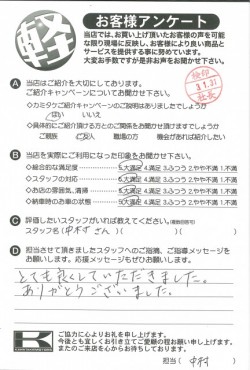 軽
お客様アンケート
当店では、お買い上げ頂いたお客様の声を可能
な限り現場に反映し、お客様により良い商品と
サービスを提供する事に努めています。
大変お手数ですが是非お声をお聞かせ下さい。
A 当店はご紹介を大切にしております。
ご紹介キャンペーンについてお聞かせ下さい。
検印
3.1.31
◇カミタケご紹介キャンペーンのご説明はありましたでしょうか
はい いいえ
◇具体的にご紹介頂ける方とのご関係をお聞かせ頂けますでしょうか
ご親族 ご友人 職場の方 機会があれば紹介したい
B 当店を実際にご利用になった印象をお聞かせ下さい。
◇総合的な満足度 5.大満足 4.満足 3.ふつう 2.やや不満 1.不満
◇スタッフの対応 5.大満足 4.満足 3.ふつう 2.やや不満 1.不満
◇お店の雰囲気、清掃 5.大満足 4.満足 3.ふつう 2.やや不満 1.不満
◇納車時のお車の状態 5.大満足 4.満足 3.ふつう 2.やや不満 1.不満
C 評価したいスタッフがいれば教えてください。(複数回答可)
スタッフ名( 中村 さん )
D 担当させて頂きましたスタッフへのご指摘、ご指導メッセージを
お願いします。応援メッセージもぜひお願いします。
とても良くしていただきました。
ありがとうございました。
K
ご協力に心よりお礼を申し上げます。
今後とも宜しくお引き立てご愛顧の程お願い申し上げます。
またのご来店を心からお待ちしております。
担当( 中村 )